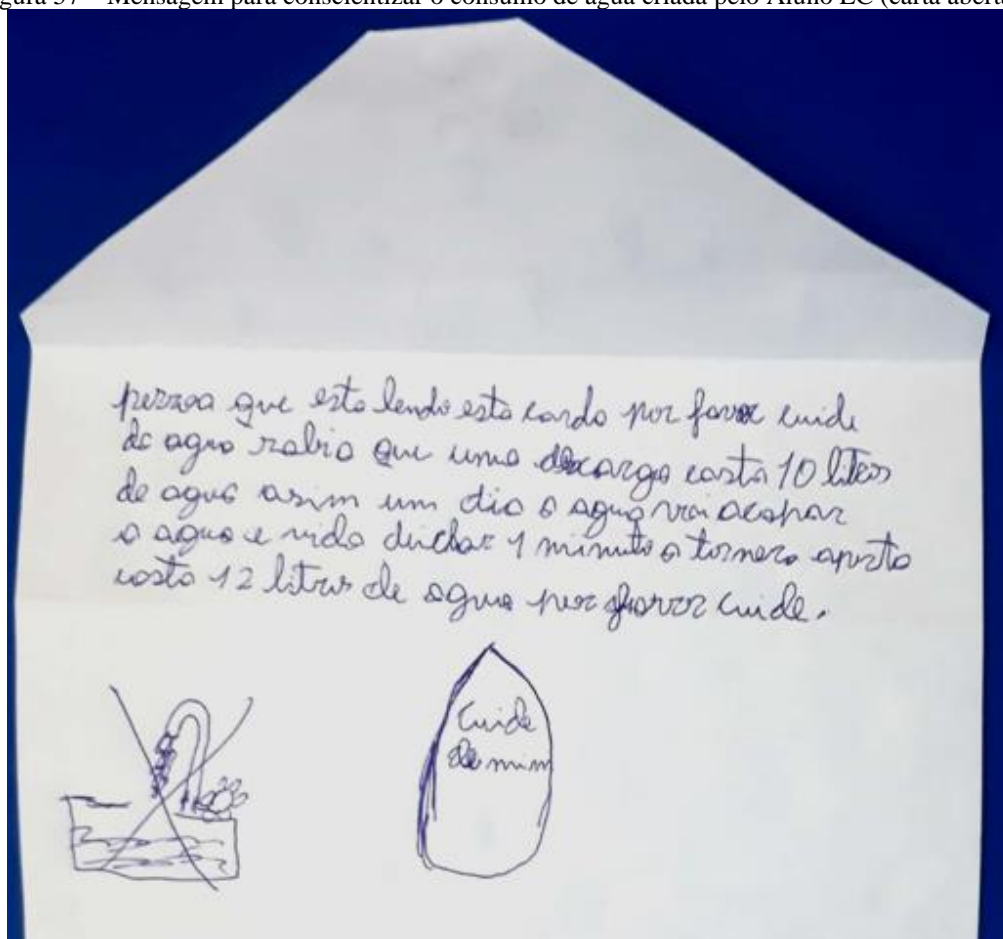 gura 37 – Mensagem para conscientizar o consumo de água criada pelo Aluno LC (carta aberta
pessoa que esta lendo esta carda por favor cuide
da agua sabia que uma descarga casta 10 liters
de agua asim um dia a agua vai acapar
a agua e vida duchar 1 minuto a tornera aperta
costa 12 litrus de agua por favor cuide.
Cuide
de mim